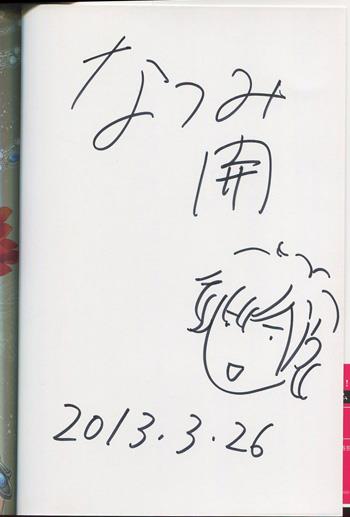 なつみ
開
2013.3.26